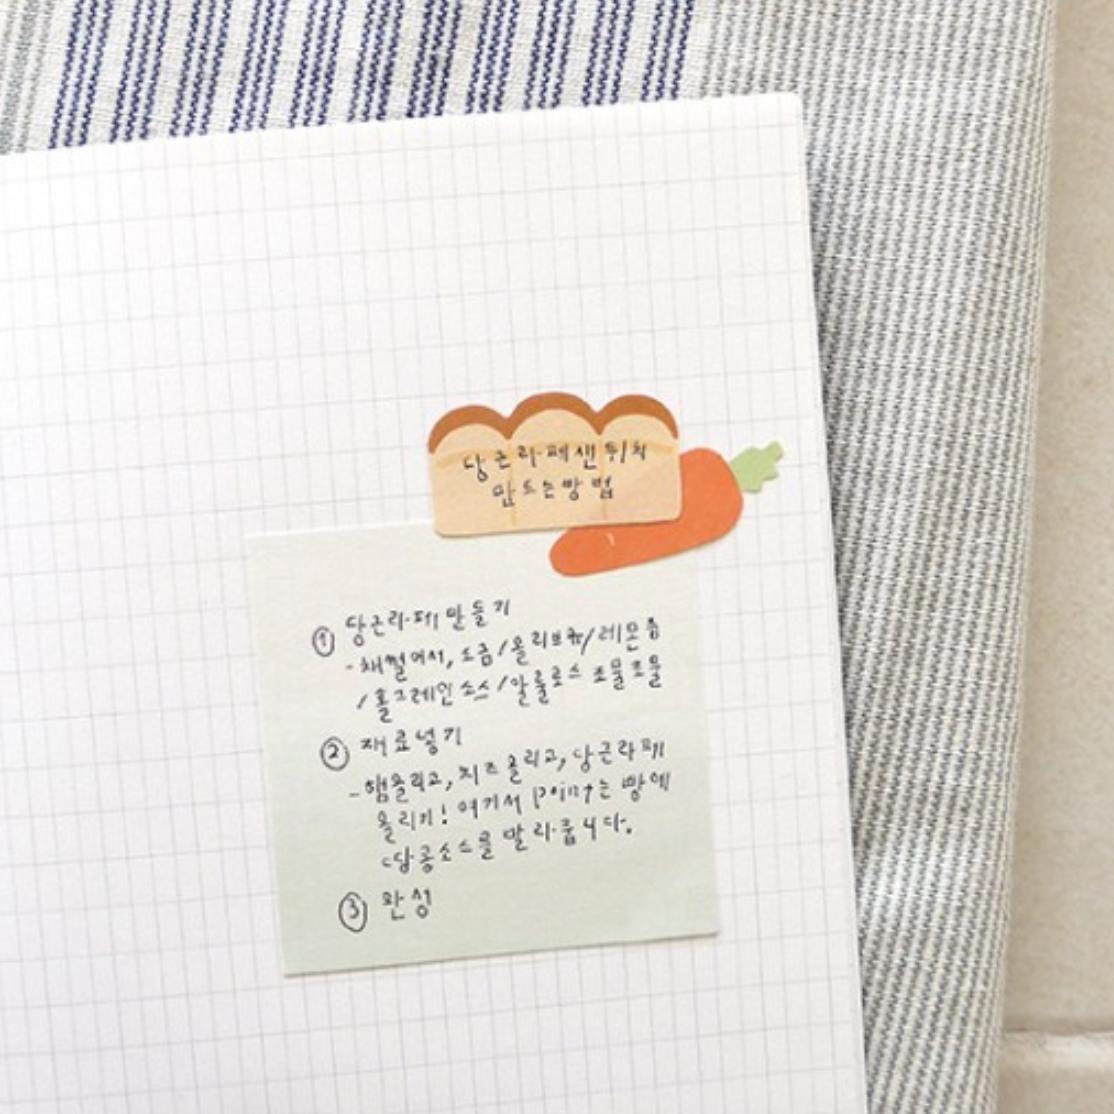 당근라페샌드위치
만드는방법
① 당근라페 만들기
- 채썰어서, 소금/올리브유/레몬즙
/홀그레인 소스/알룰로스 조물조물
② 재료넣기
- 햄올리고, 치즈 올리고, 당근라페
올리기! 여기서 point는 빵에
땅콩소스를 발라줍니다.
③ 완성